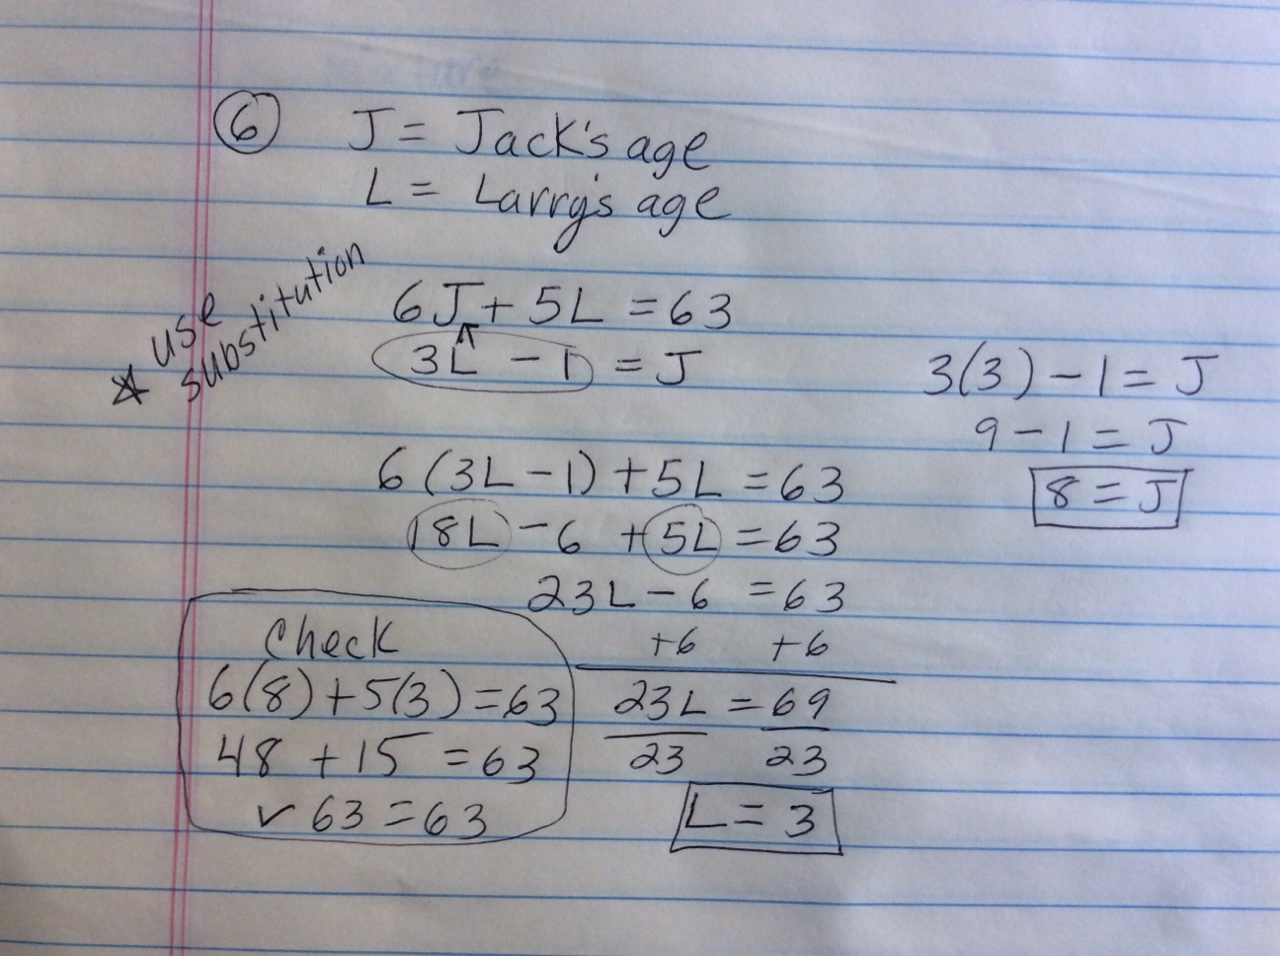 6 J = Jack's age
L = Larry's age
★ use substitution
6J + 5L = 63
3L - 1 = J
6(3L - 1) + 5L = 63
18L - 6 + 5L = 63
23L - 6 = 63
+6 +6
23L = 69
23 23
L = 3
3(3) - 1 = J
9 - 1 = J
8 = J
Check
6(8) + 5(3) = 63
48 + 15 = 63
✓ 63 = 63